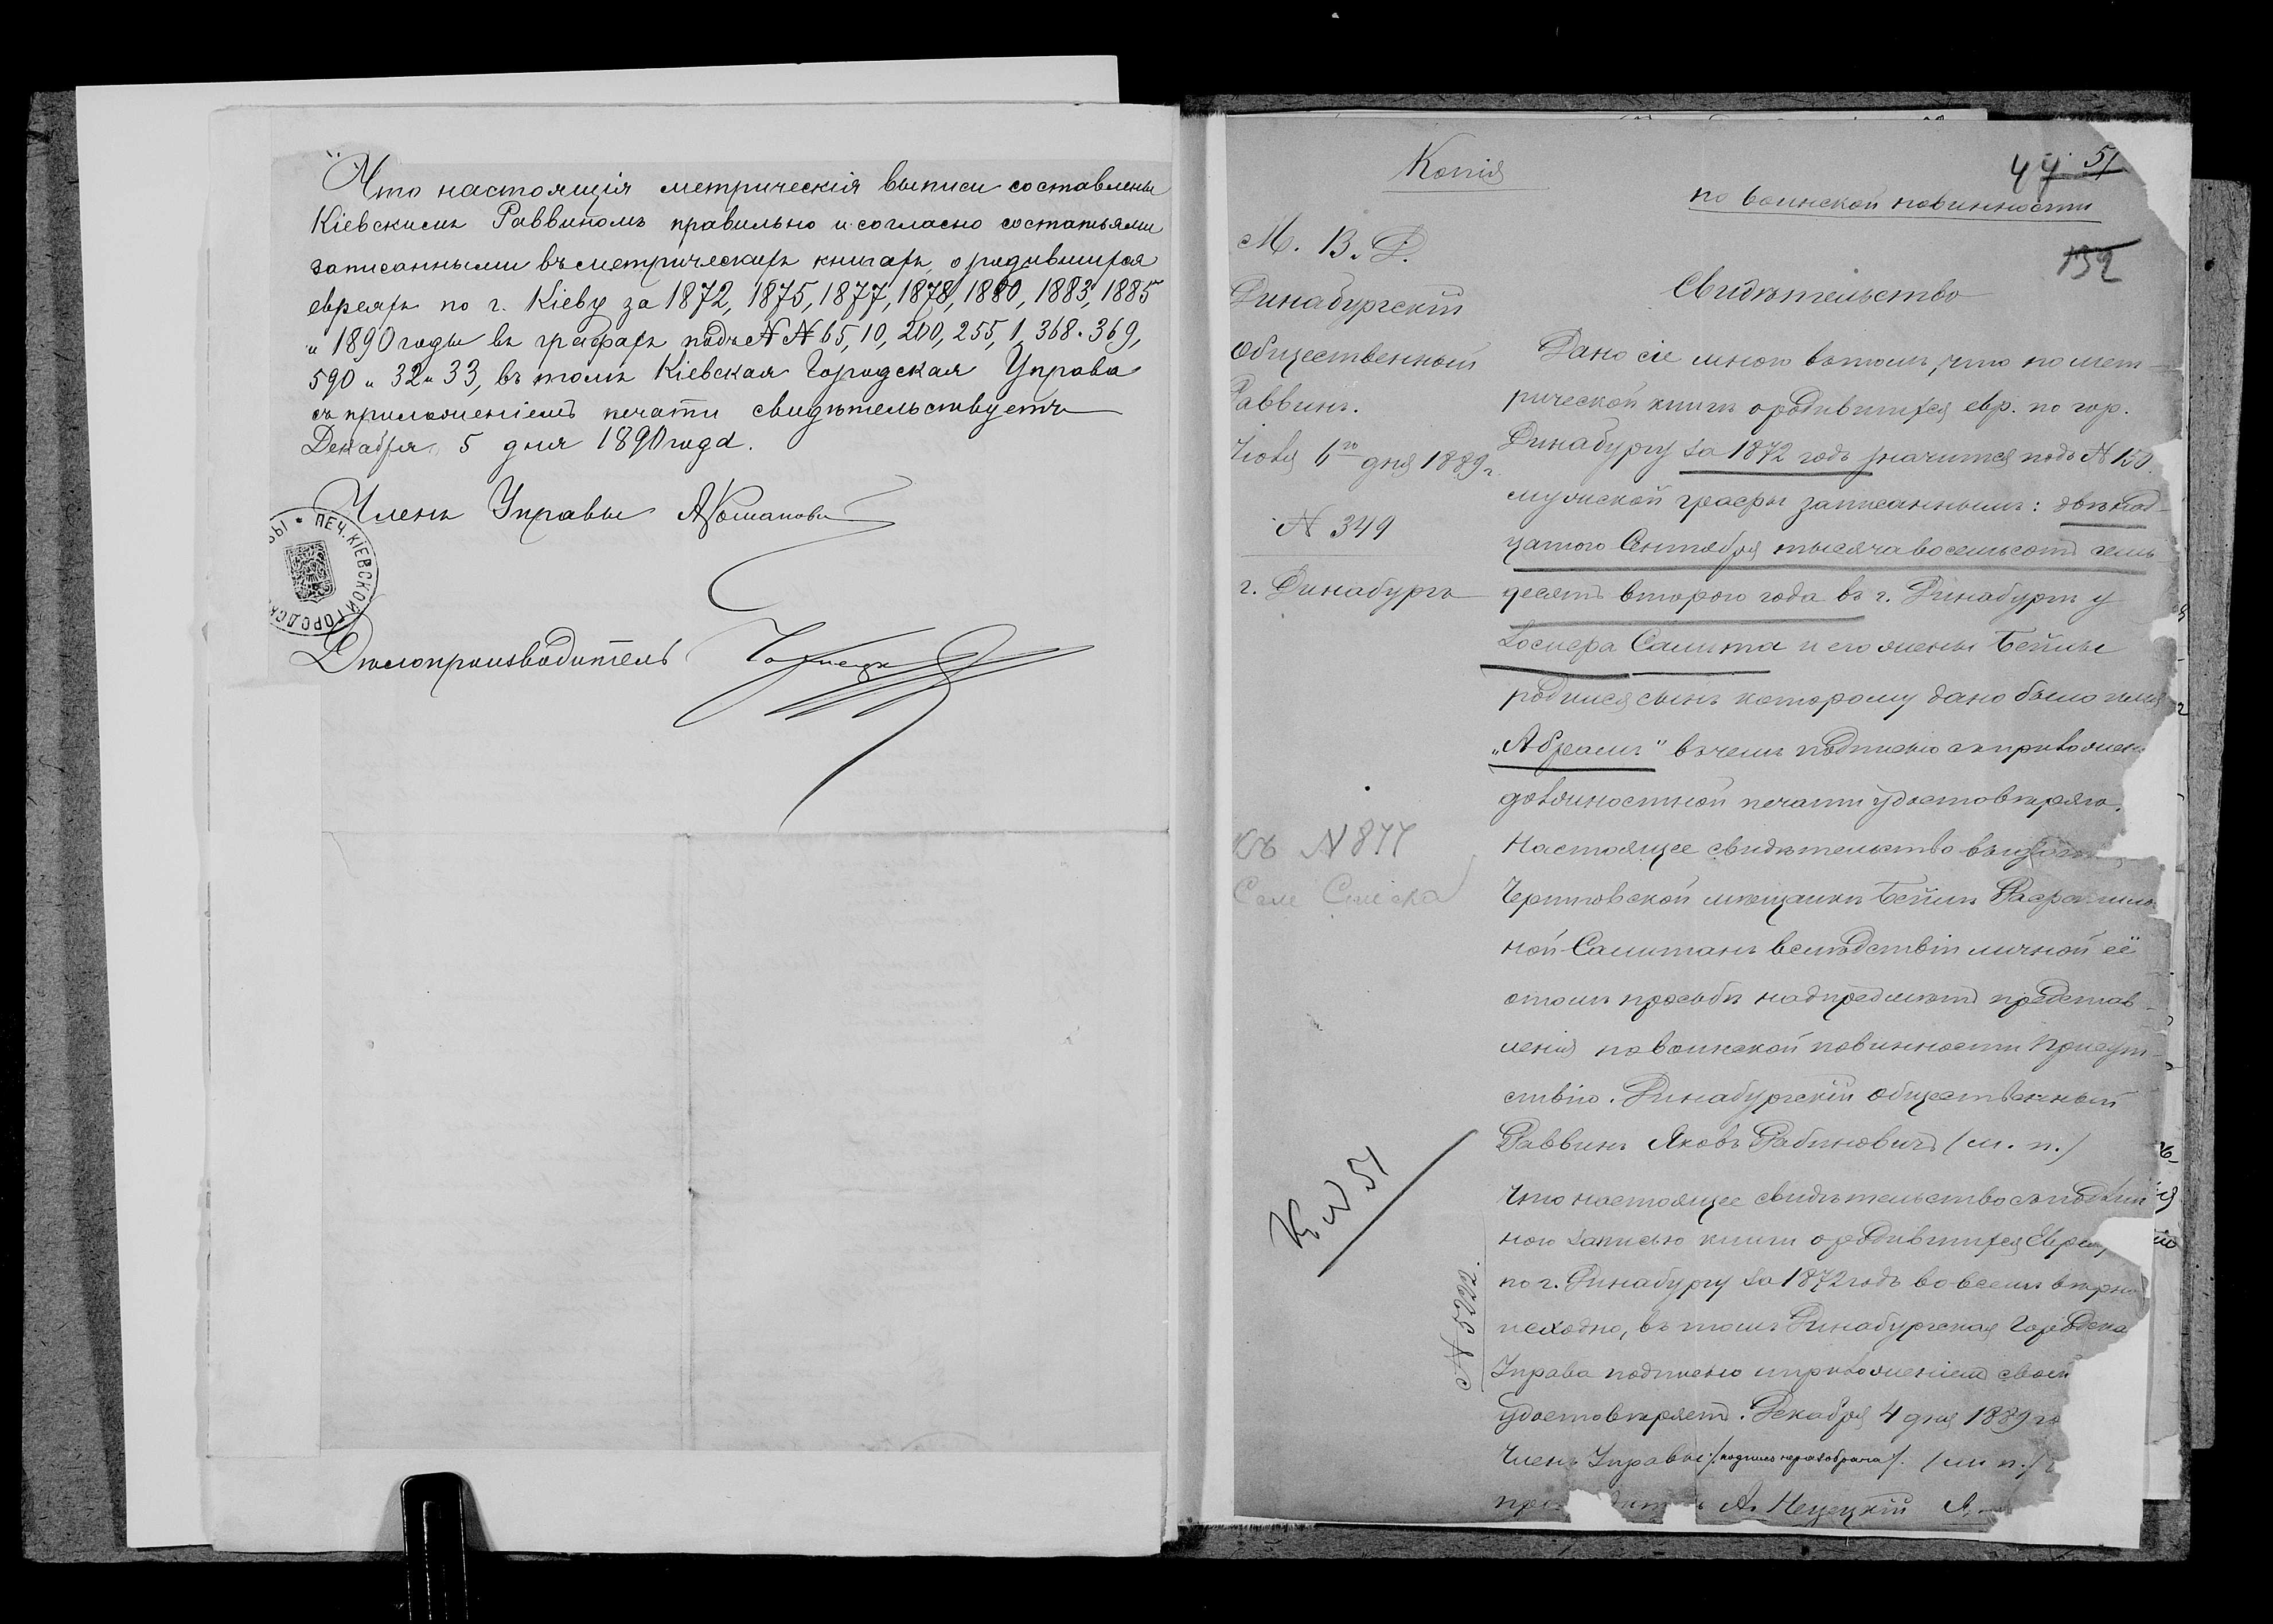 Что настоящія метрическія выписи составлены
Кіевскимъ Раввиномъ правильно и согласно со статьями
записанными въ метрическихъ книгахъ о родившихся
евреяхъ по г. Кіеву за 1872, 1875, 1877, 1878, 1880, 1883, 1885
и 1890 годы въ графахъ подъ N N 65, 10, 200, 255, 1, 368. 369,
590 и 32 и 33, въ томъ Кіевская Городская Управа
съ приложеніемъ печати свидѣтельствуетъ
Декабря 5 дня 1890 года.
Членъ Управы
ПЕЧ. КІЕВСКОЙ ГОРОДСК
Дѣлопроизводитель
Копія
44 51
по воинской повинности
132
М. В. Д.
Динабургскій
Общественный
Раввинъ.
Іюля 6го дня 1889 г.
N 349
г. Динабургъ
Къ N 877
К N 51
N 5222.
Свидѣтельство
Дано сіе мною въ томъ, что по мет-
рической книгѣ о родившихся евр. по гор.
Динабургу за 1872 годъ значится подъ N 150.
мужской графы записаннымъ: двѣнад-
цатого Сентября тысяча восемьсотъ семь
десятъ второго года въ г. Динабургѣ у
Лосмера Самита и его жены Бейлы
родился сынъ которому дано было имя
„Абрамъ" въ чемъ подписью съ приложен
должностной печати удостовѣряю.
Настоящее свидѣтельство
Черниговской мѣщанкѣ Бейлѣ
ной Самитанъ вслѣдствіи личной её
о томъ просьбы на предметъ представ-
ленія по воинской повинности Присут-
ствію. Динабургскій общественный
Раввинъ Яковъ Рабиновичъ (м. п.)
Что настоящее свидѣтельство съ подлин
ною записью книги о родившихся Евре
по г. Динабургу за 1872 годъ во всемъ вѣрно
и сходно, въ томъ Динабургская Городска
Управа подписью и приложеніемъ своей
удостовѣряетъ. Декабря 4 дня 1889 го
Членъ Управы /подпись неразобрана/. (м. п.)
А. Нецецкій